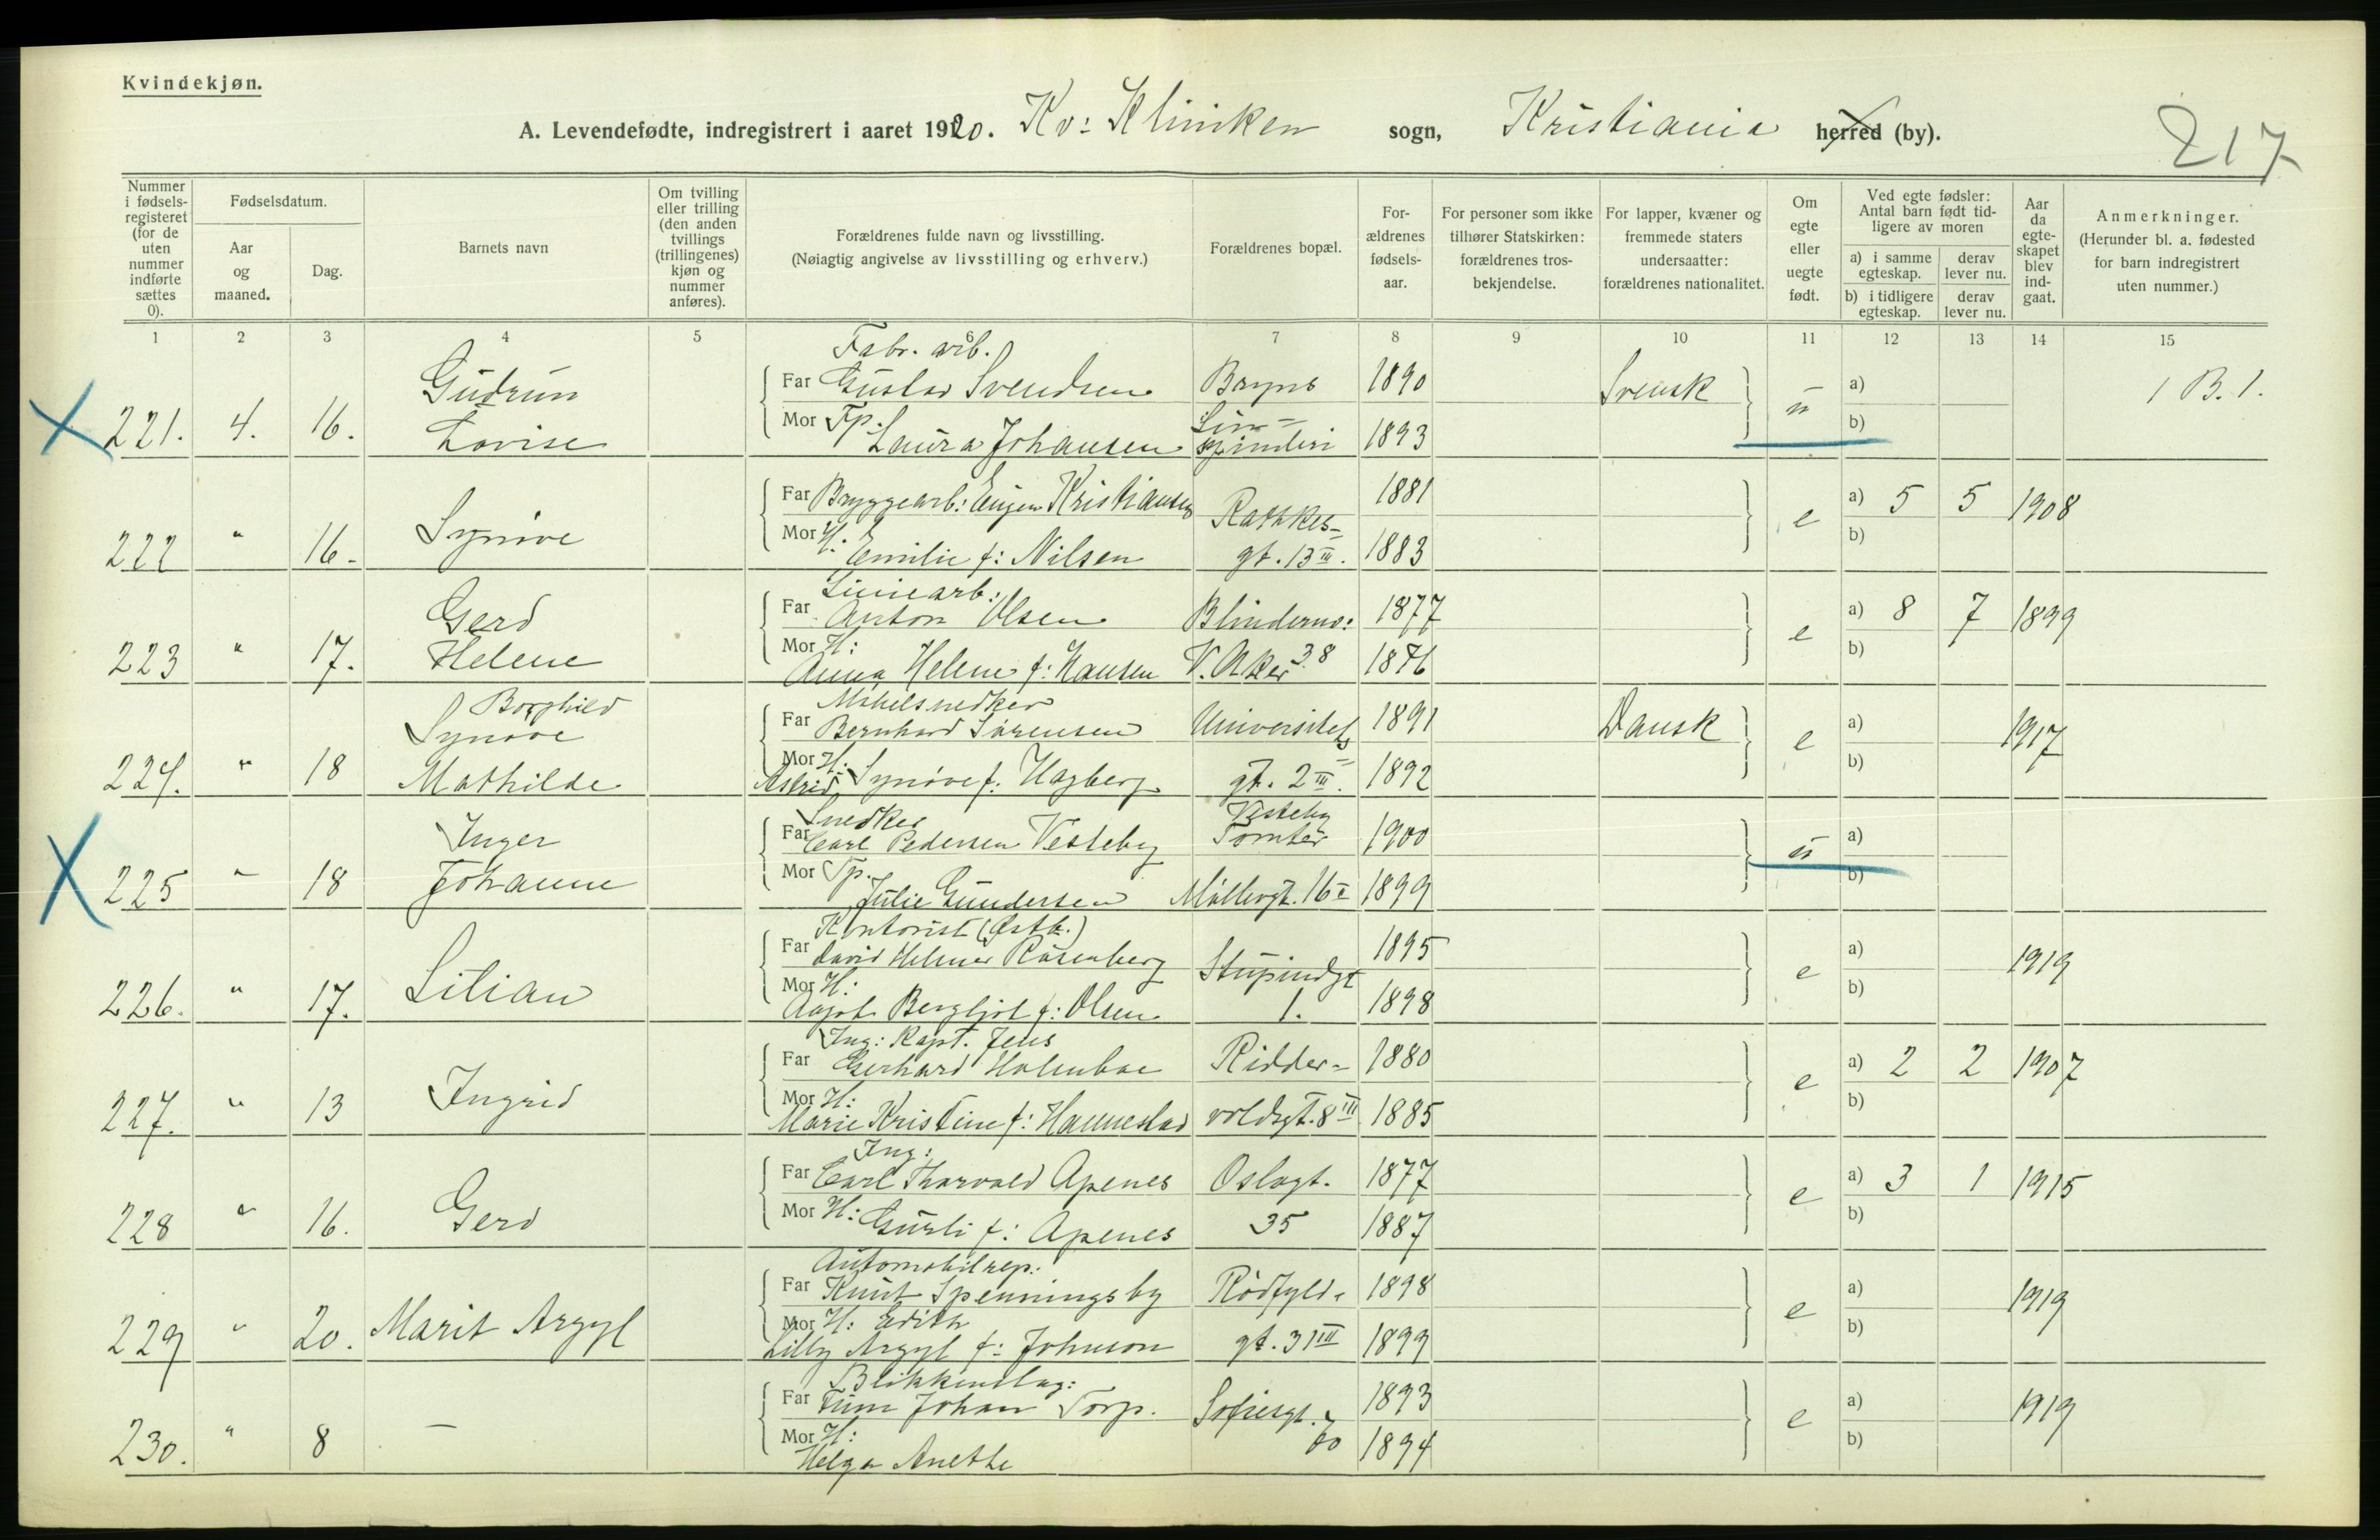 Kvindekjøn.
A. Levendefødte, indregistrert i aaret 1920. Kv: Kliniken sogn, Kristiania herred (by).
217
Nummer i fødselsregisteret (for de uten nummer indførte sættes 0).
Fødselsdatum.
Aar og maaned.
Dag.
Barnets navn
Om tvilling eller trilling (den anden tvillings (trillingenes) kjøn og nummer anføres).
Forældrenes fulde navn og livsstilling.
(Nøiagtig angivelse av livsstilling og erhverv.)
Forældrenes bopæl.
For-ældrenes fødsels-aar.
For personer som ikke tilhører Statskirken: forældrenes tros-bekjendelse.
For lapper, kvæner og fremmede staters undersaatter: forældrenes nationalitet.
Om egte eller uegte født.
Ved egte fødsler: Antal barn født tid-ligere av moren
a) i samme egteskap.
derav lever nu.
b) i tidligere egteskap.
derav lever nu.
Aar da egte-skapet blev ind-gaat.
Anmerkninger.
(Herunder bl. a. fødested for barn indregistrert uten nummer.)
1 2 3 4 5 6 7 8 9 10 11 12 13 14 15
Fabr. arb.
Gudrun Far Gustav Svendsen Bryns 1890 Svensk a)
X 221. 4. 16. Lovise Mor Fp. Laura Johansen Lin= spinderi 1893 u b) 1 B. 1.
Far Bryggearb: Eugen Kristiansen 1881 a) 5 5 1908
222 " 16. Synøve Mor H: Emilie f: Nilsen Rathkes= gt. 13 III. 1883 e b)
Liniearb:
Gerd Far Anton Olsen Blindernv: 1877 a) 8 7 1899
223 " 17. Helene Mor H: Anna Helene f: Hansen V. Aker 38 1876 e b)
Borghild Møbelsnedker
Synøve Far Bernhard Sørensen Universitets 1891 Dansk a) 1917
224. " 18 Mathilde Mor H: Astrid Synøve f: Hagberg gt. 2 III. 1892 e b)
Snedker Vesteby
Inger Far Carl Pedersen Vesteby Tomter 1900 a)
X 225 " 18 Johanne Mor Tp. Julie Gundersen Møllergt. 16 I 1899 u b)
Kontorist (Østb.)
Far David Helmer Rosenberg 1895 a) 1919
226. " 17. Lilian Mor H: Aagot Bergljot f: Olsen Stupindgt 1. 1898 e b)
Ing: Kapt. Jens
Far Gerhard Holmboe Ridder= 1880 a) 2 2 1907
227. " 13 Ingrid Mor H: Marie Kristine f: Hannestad voldsgt. 8 III 1885 e b)
Ing:
Far Carl Thorvald Apenes Oslogt. 1877 a) 3 1 1915
228 " 16. Gerd Mor H: Gurli f: Apenes 35 1887 e b)
Automobilrep:
Far Knut Spenningsby Rødfyld= 1898 a) 1919
229 " 20. Marit Argyl Mor H: Edith Lilly Argyl f: Johnson gt. 3 III 1899 e b)
Blikkenslag:
Far Finn Johan Torp. Sofiesgt. 1893 a) 1919
230. " 8 — Mor H: Helga Anethe 70 1894 e b)